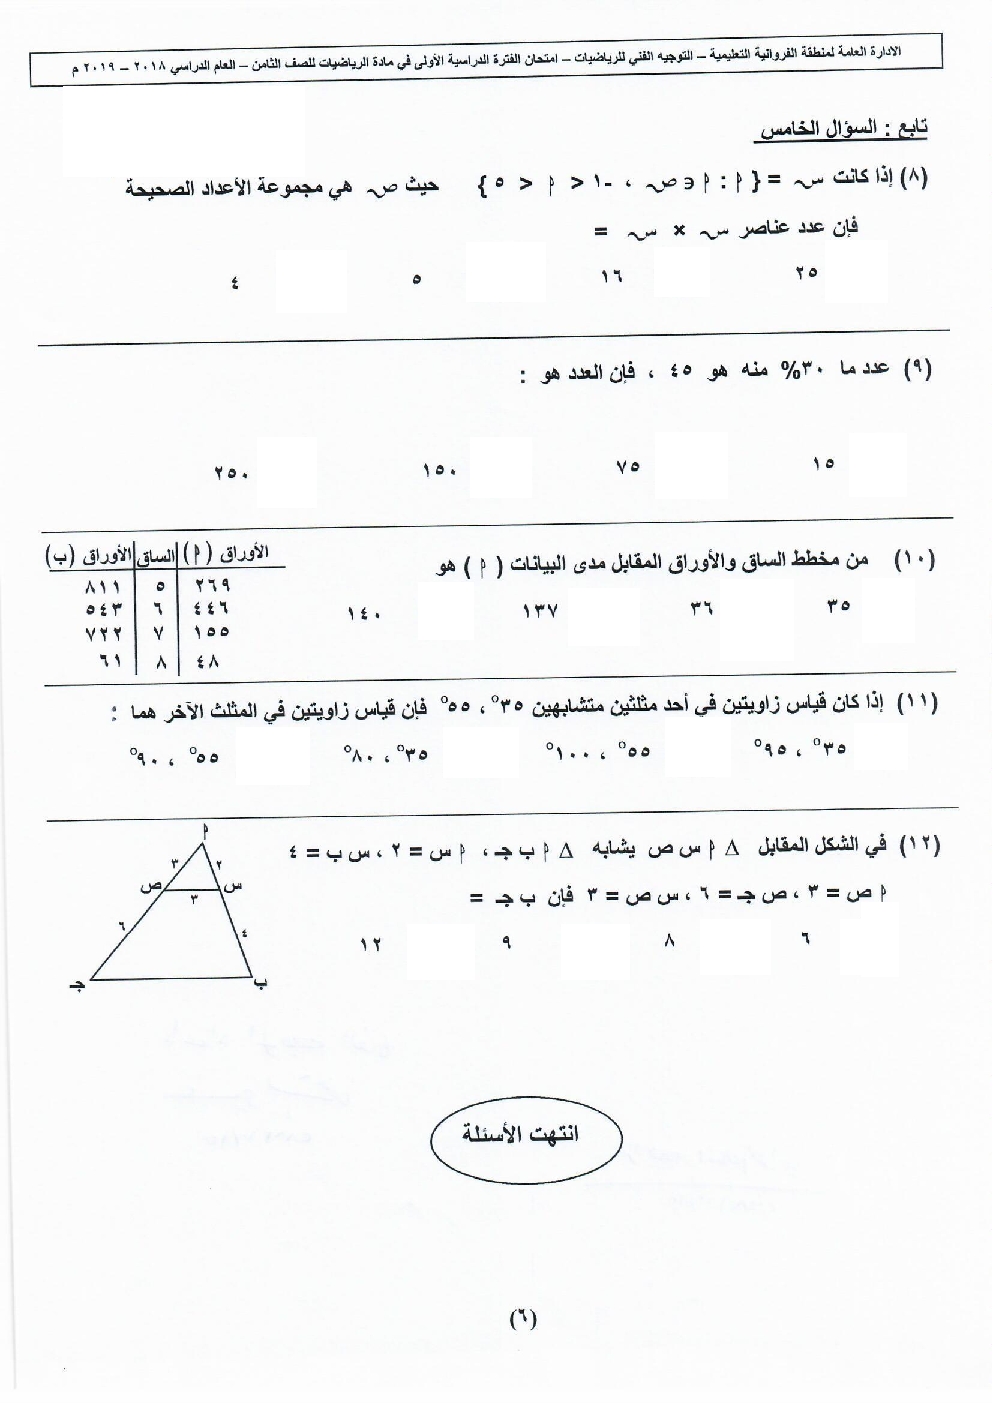 الادارة العامة لمنطقة الفروانية التعليمية – التوجيه الفني للرياضيات – امتحان الفترة الدراسية الأولى في مادة الرياضيات للصف الثامن – العام الدراسي ٢٠١٨ – ٢٠١٩ م
تابع : السؤال الخامس
(٨) إذا كانت س = { ا : ا ∈ ص ، -١ < ا < ٥ } حيث ص هي مجموعة الأعداد الصحيحة
فإن عدد عناصر س × س =
٢٥ ١٦ ٥ ٤
(٩) عدد ما ٣٠% منه هو ٤٥ ، فإن العدد هو :
١٥ ٧٥ ١٥٠ ٢٥٠
(١٠) من مخطط الساق والأوراق المقابل مدى البيانات ( ا ) هو
٣٥ ٣٦ ١٣٧ ١٤٠
الأوراق ( ا ) الساق الأوراق (ب)
٢٦٩ ٥ ٨١١
٤٤٦ ٦ ٥٤٣
١٥٥ ٧ ٧٢٢
٤٨ ٨ ٦١
(١١) إذا كان قياس زاويتين في أحد مثلثين متشابهين ٣٥° ، ٥٥° فإن قياس زاويتين في المثلث الآخر هما :
٣٥° ، ٩٥° ٥٥° ، ١٠٠° ٣٥° ، ٨٠° ٥٥° ، ٩٠°
(١٢) في الشكل المقابل Δ ا س ص يشابه Δ ا ب جـ ، ا س = ٢ ، س ب = ٤
ا ص = ٣ ، ص جـ = ٦ ، س ص = ٣ فإن ب جـ =
٦ ٨ ٩ ١٢
ا
٢ ٣
س ص
٣
٤ ٦
ب جـ
انتهت الأسئلة
(٦)